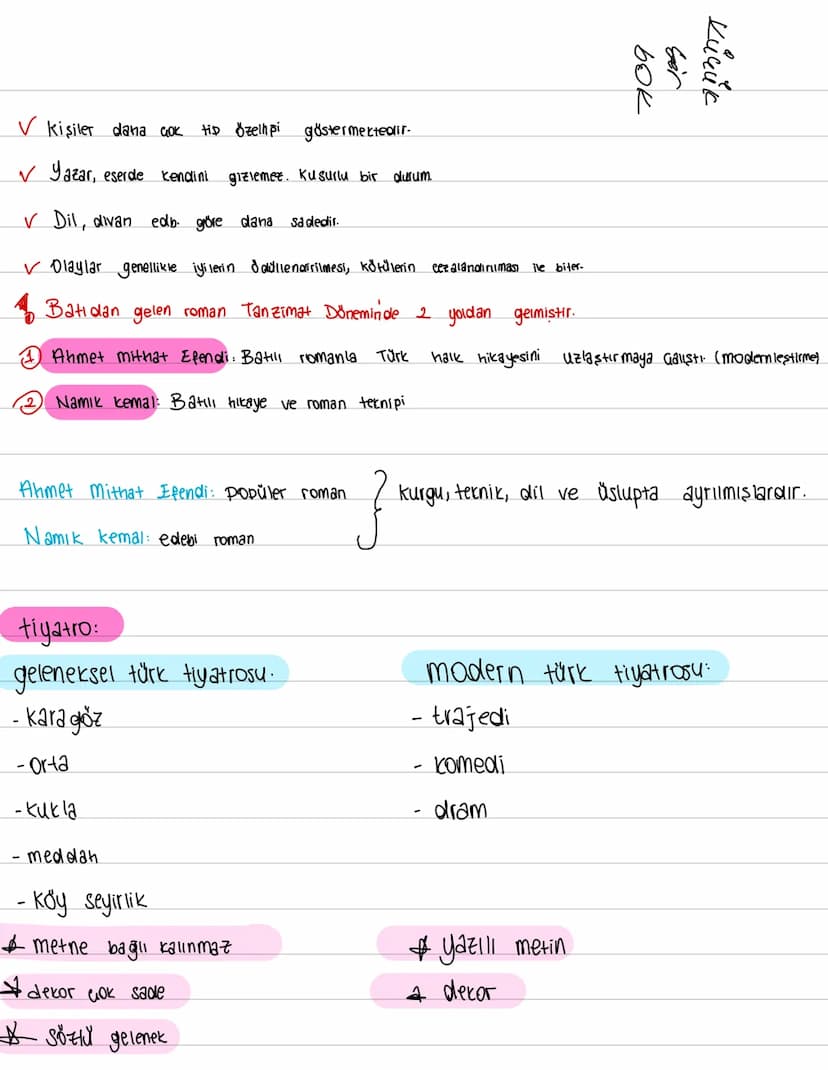 Küçük
bir
bok
✓ Kişiler daha çok tip özelliği göstermektedir.
✓ Yazar, eserde kendini gizlemez. Kusurlu bir durum
✓ Dil, divan edb. göre daha sadedir.
✓ Olaylar genellikle iyilerin ödüllendirilmesi, kötülerin cezalandırılması ile biter.
Batıdan gelen roman Tanzimat Dönemin'de 2 yoldan gelmiştir.
1 Ahmet Mithat Efendi: Batılı romanla Türk halk hikayesini uzlaştırmaya çalıştı. (modernleştirme)
2 Namık kemal: Batılı hikaye ve roman tekniği
Ahmet Mithat Efendi: popüler roman } kurgu, teknik, dil ve üslupta ayrılmışlardır.
Namık kemal: edebi roman
tiyatro:
geleneksel türk tiyatrosu.
- karagöz
- orta
- kukla
- meddah
- köy seyirlik
* metne bağlı kalınmaz
* dekor çok sade
* sözlü gelenek
modern türk tiyatrosu:
- trajedi
- komedi
- dram
* yazılı metin
* dekor